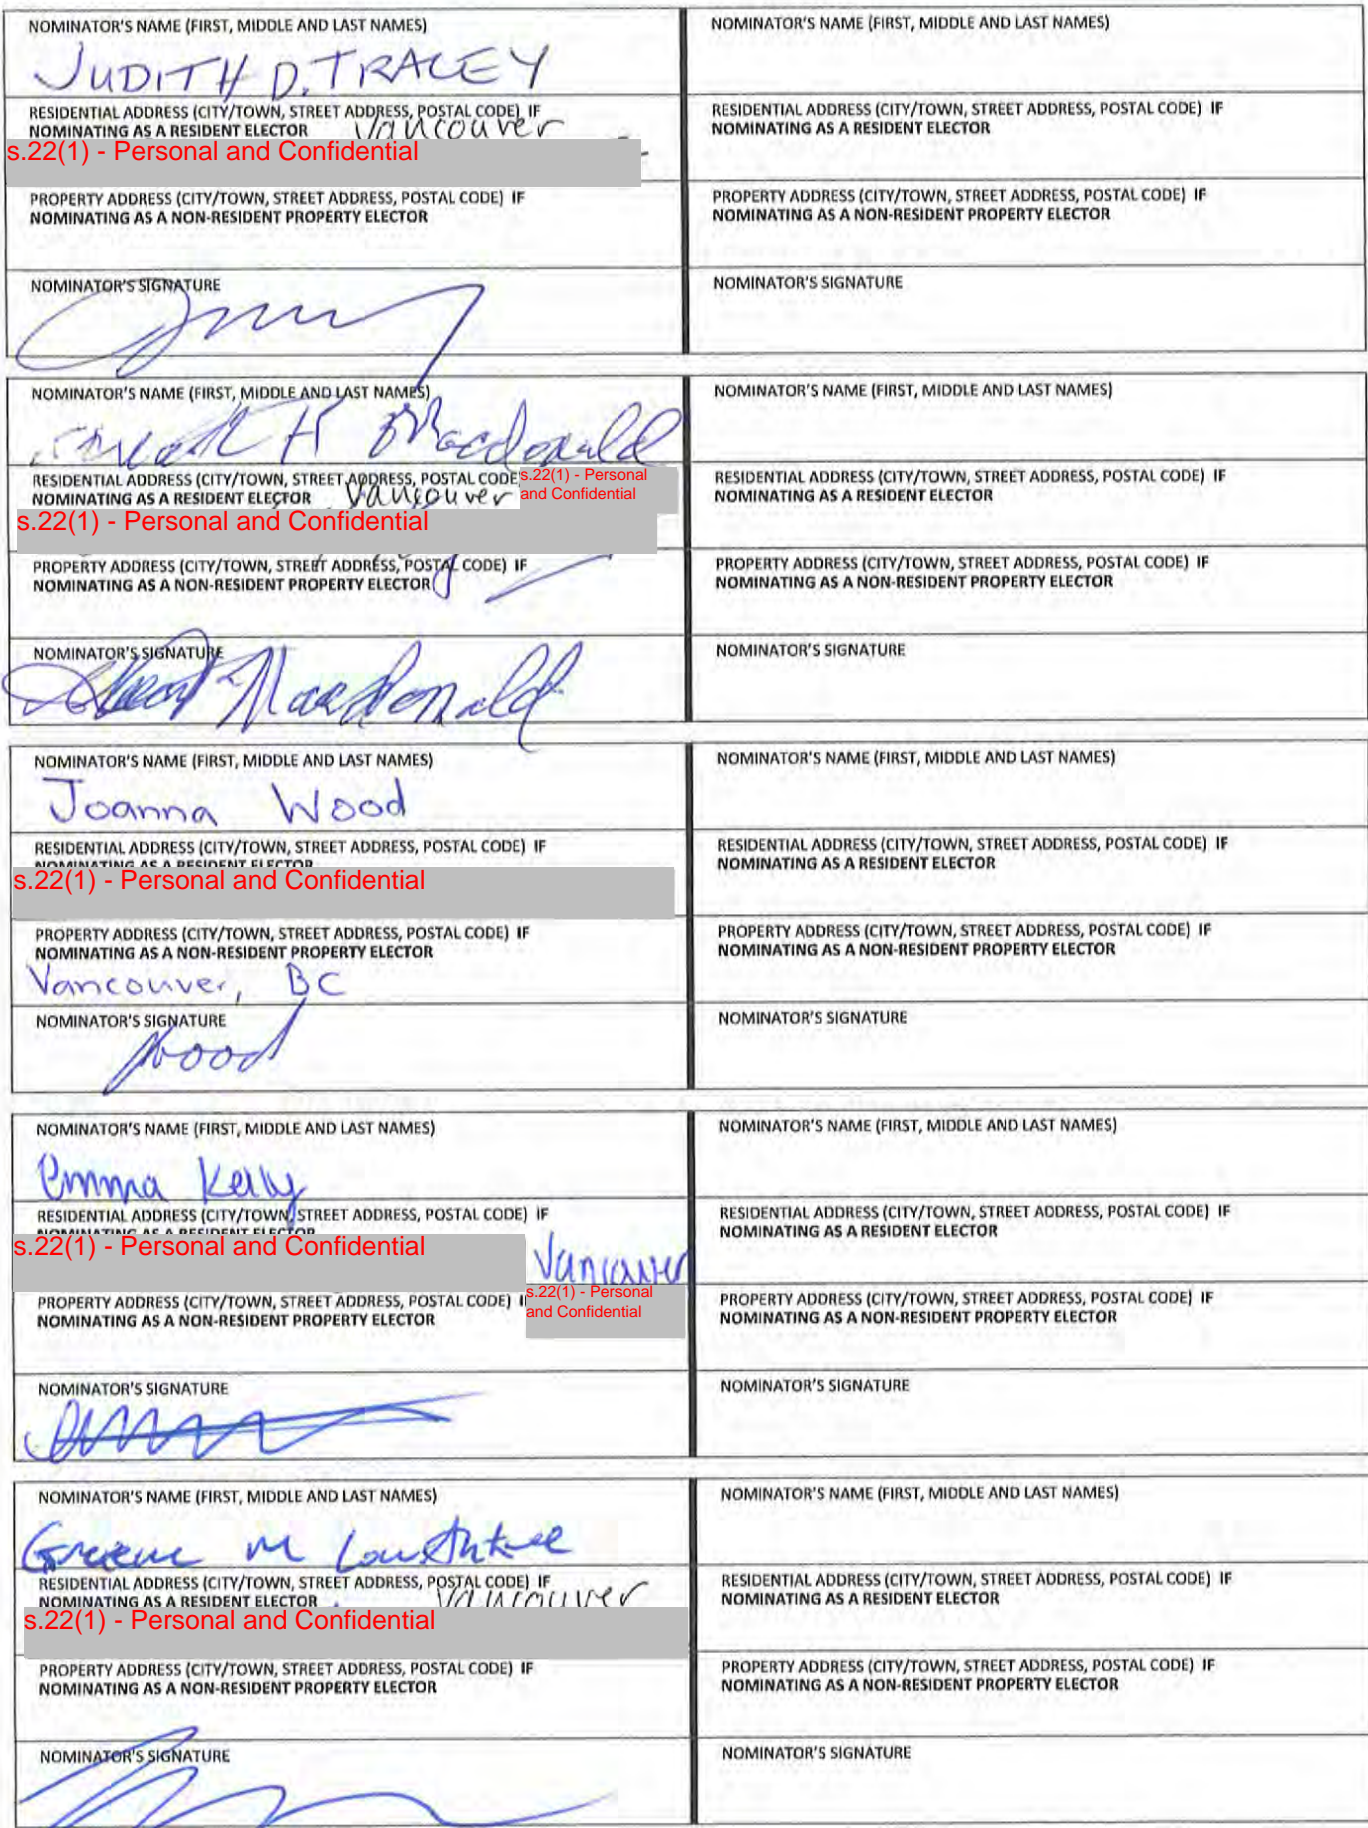 NOMINATOR'S NAME (FIRST, MIDDLE AND LAST NAMES)
JUDITH D. TRACEY
RESIDENTIAL ADDRESS (CITY/TOWN, STREET ADDRESS, POSTAL CODE) IF
NOMINATING AS A RESIDENT ELECTOR Vancouver
s.22(1) - Personal and Confidential
PROPERTY ADDRESS (CITY/TOWN, STREET ADDRESS, POSTAL CODE) IF
NOMINATING AS A NON-RESIDENT PROPERTY ELECTOR
NOMINATOR'S SIGNATURE
NOMINATOR'S NAME (FIRST, MIDDLE AND LAST NAMES)
RESIDENTIAL ADDRESS (CITY/TOWN, STREET ADDRESS, POSTAL CODE) IF
NOMINATING AS A RESIDENT ELECTOR
PROPERTY ADDRESS (CITY/TOWN, STREET ADDRESS, POSTAL CODE) IF
NOMINATING AS A NON-RESIDENT PROPERTY ELECTOR
NOMINATOR'S SIGNATURE
NOMINATOR'S NAME (FIRST, MIDDLE AND LAST NAMES)
H Macdonald
RESIDENTIAL ADDRESS (CITY/TOWN, STREET ADDRESS, POSTAL CODE
NOMINATING AS A RESIDENT ELECTOR Vancouver
s.22(1) - Personal
and Confidential
s.22(1) - Personal and Confidential
PROPERTY ADDRESS (CITY/TOWN, STREET ADDRESS, POSTAL CODE) IF
NOMINATING AS A NON-RESIDENT PROPERTY ELECTOR
NOMINATOR'S SIGNATURE
Macdonald
NOMINATOR'S NAME (FIRST, MIDDLE AND LAST NAMES)
RESIDENTIAL ADDRESS (CITY/TOWN, STREET ADDRESS, POSTAL CODE) IF
NOMINATING AS A RESIDENT ELECTOR
PROPERTY ADDRESS (CITY/TOWN, STREET ADDRESS, POSTAL CODE) IF
NOMINATING AS A NON-RESIDENT PROPERTY ELECTOR
NOMINATOR'S SIGNATURE
NOMINATOR'S NAME (FIRST, MIDDLE AND LAST NAMES)
Joanna Wood
RESIDENTIAL ADDRESS (CITY/TOWN, STREET ADDRESS, POSTAL CODE) IF
NOMINATING AS A RESIDENT ELECTOR
s.22(1) - Personal and Confidential
PROPERTY ADDRESS (CITY/TOWN, STREET ADDRESS, POSTAL CODE) IF
NOMINATING AS A NON-RESIDENT PROPERTY ELECTOR
Vancouver, BC
NOMINATOR'S SIGNATURE
Wood
NOMINATOR'S NAME (FIRST, MIDDLE AND LAST NAMES)
RESIDENTIAL ADDRESS (CITY/TOWN, STREET ADDRESS, POSTAL CODE) IF
NOMINATING AS A RESIDENT ELECTOR
PROPERTY ADDRESS (CITY/TOWN, STREET ADDRESS, POSTAL CODE) IF
NOMINATING AS A NON-RESIDENT PROPERTY ELECTOR
NOMINATOR'S SIGNATURE
NOMINATOR'S NAME (FIRST, MIDDLE AND LAST NAMES)
Emma Kelly
RESIDENTIAL ADDRESS (CITY/TOWN, STREET ADDRESS, POSTAL CODE) IF
NOMINATING AS A RESIDENT ELECTOR
s.22(1) - Personal and Confidential
Vancouver
s.22(1) - Personal
and Confidential
PROPERTY ADDRESS (CITY/TOWN, STREET ADDRESS, POSTAL CODE) I
NOMINATING AS A NON-RESIDENT PROPERTY ELECTOR
NOMINATOR'S SIGNATURE
NOMINATOR'S NAME (FIRST, MIDDLE AND LAST NAMES)
RESIDENTIAL ADDRESS (CITY/TOWN, STREET ADDRESS, POSTAL CODE) IF
NOMINATING AS A RESIDENT ELECTOR
PROPERTY ADDRESS (CITY/TOWN, STREET ADDRESS, POSTAL CODE) IF
NOMINATING AS A NON-RESIDENT PROPERTY ELECTOR
NOMINATOR'S SIGNATURE
NOMINATOR'S NAME (FIRST, MIDDLE AND LAST NAMES)
M
RESIDENTIAL ADDRESS (CITY/TOWN, STREET ADDRESS, POSTAL CODE) IF
NOMINATING AS A RESIDENT ELECTOR Vancouver
s.22(1) - Personal and Confidential
PROPERTY ADDRESS (CITY/TOWN, STREET ADDRESS, POSTAL CODE) IF
NOMINATING AS A NON-RESIDENT PROPERTY ELECTOR
NOMINATOR'S SIGNATURE
NOMINATOR'S NAME (FIRST, MIDDLE AND LAST NAMES)
RESIDENTIAL ADDRESS (CITY/TOWN, STREET ADDRESS, POSTAL CODE) IF
NOMINATING AS A RESIDENT ELECTOR
PROPERTY ADDRESS (CITY/TOWN, STREET ADDRESS, POSTAL CODE) IF
NOMINATING AS A NON-RESIDENT PROPERTY ELECTOR
NOMINATOR'S SIGNATURE